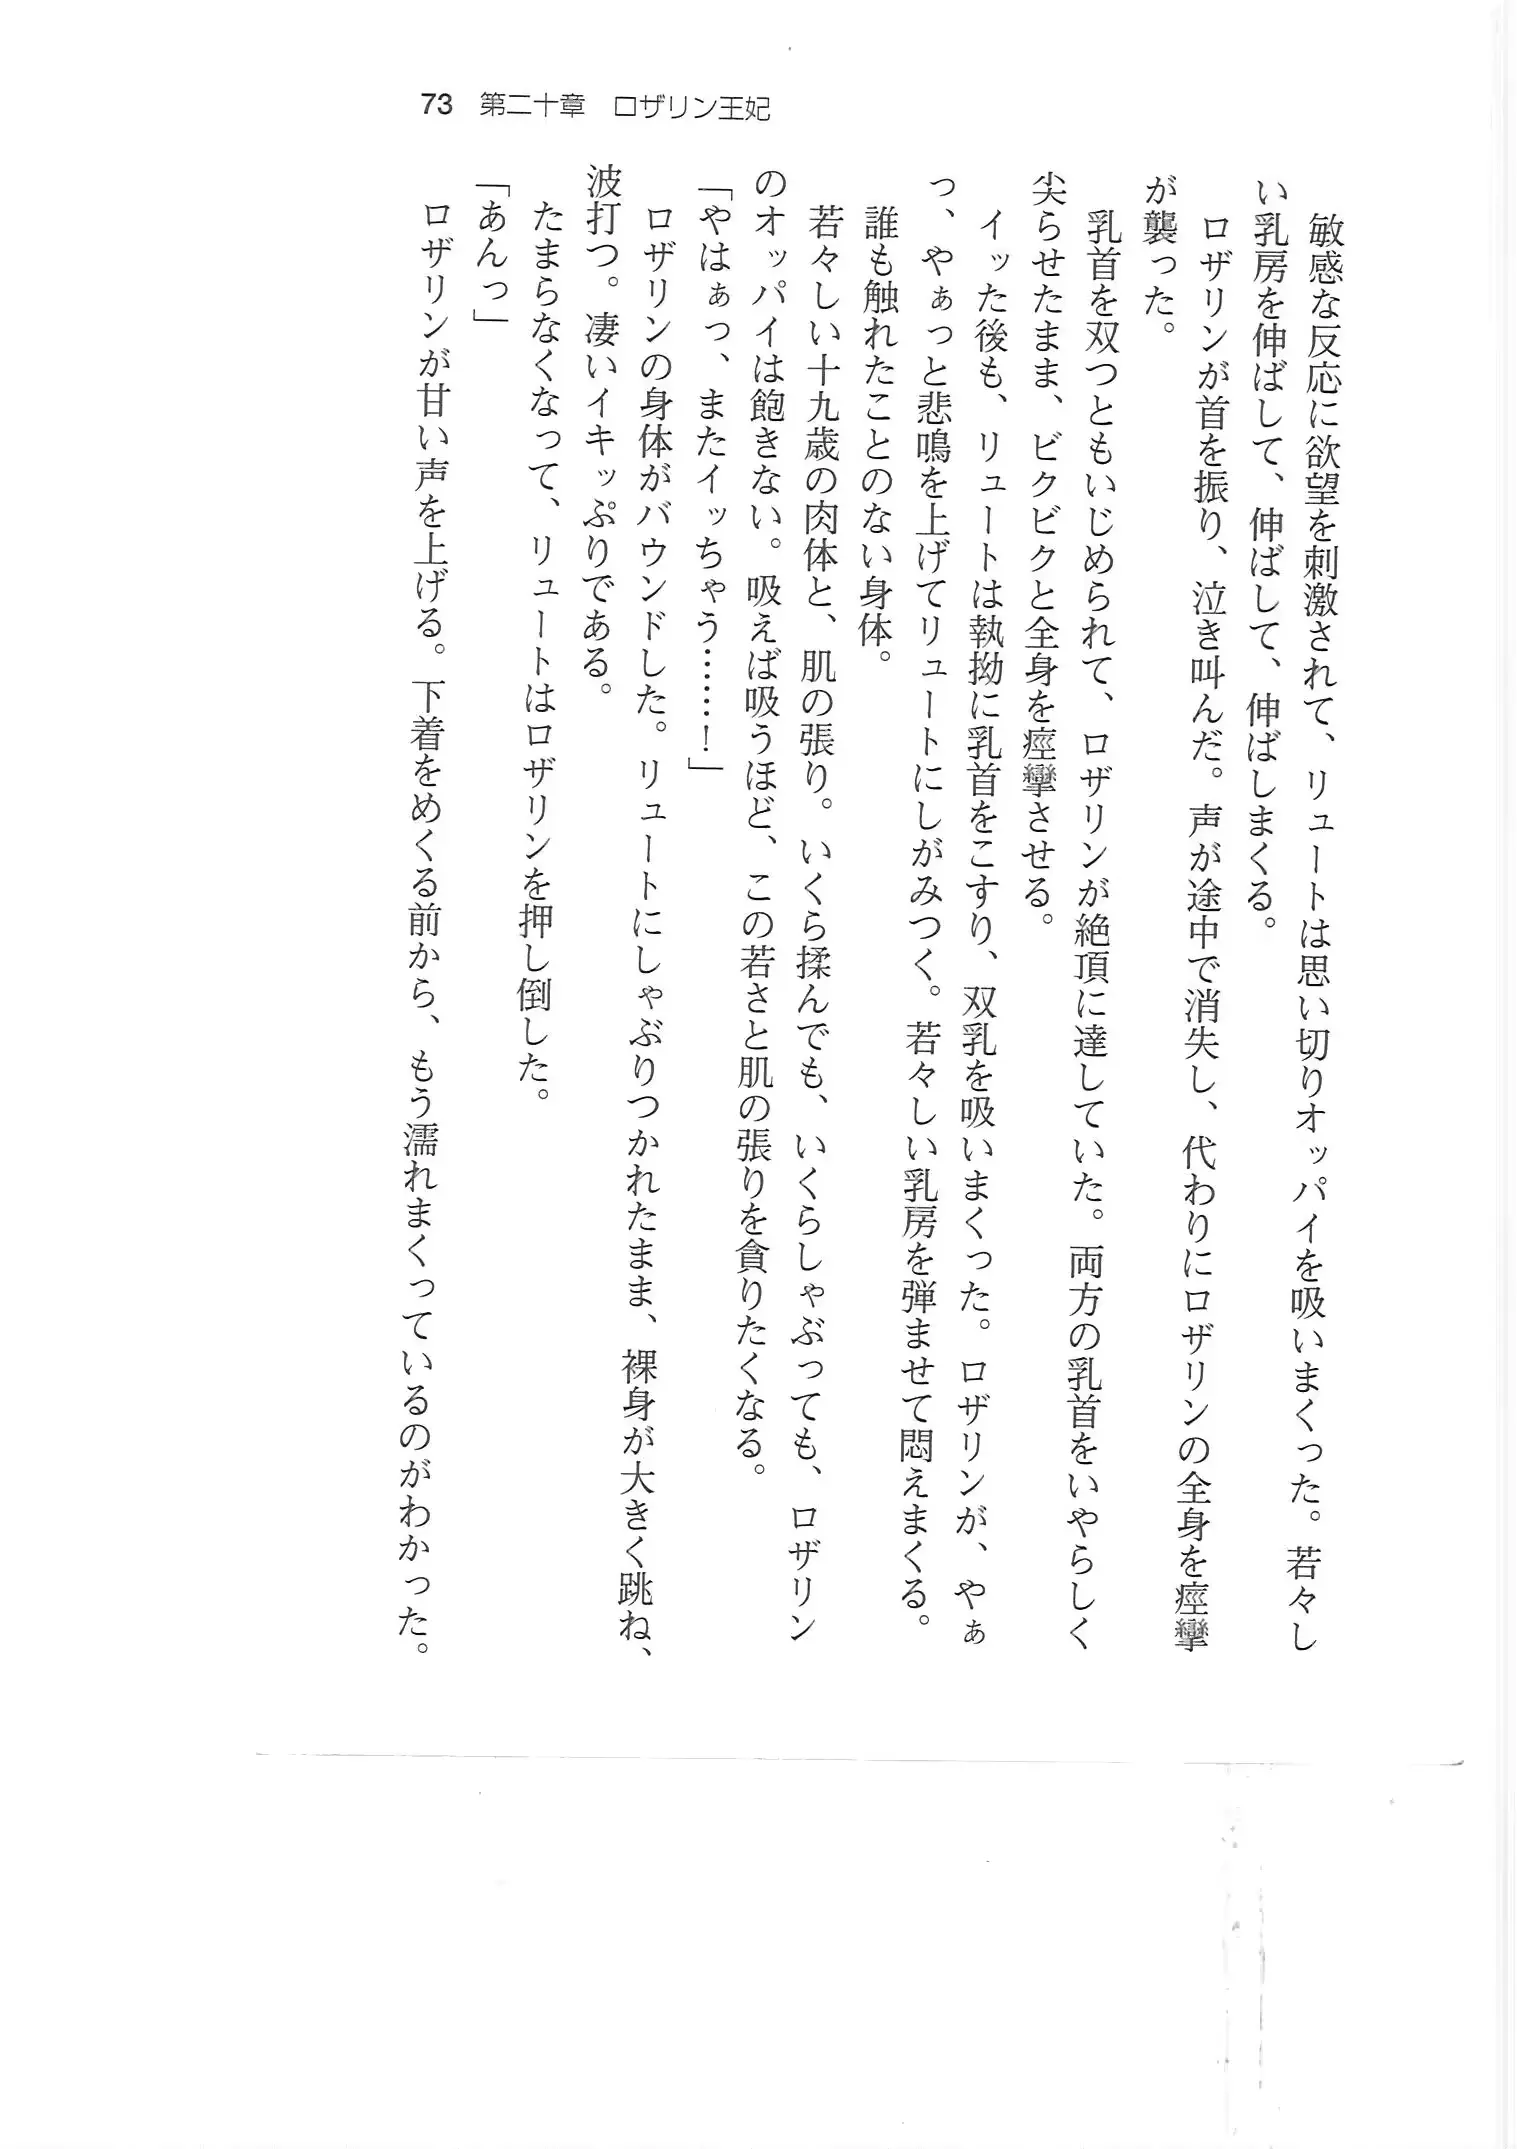 73 第二十章 ロザリン王妃
敏感な反応に欲望を刺激されて、リュートは思い切りオッパイを吸いまくった。若々し
い乳房を伸ばして、伸ばして、伸ばしまくる。
ロザリンが首を振り、泣き叫んだ。声が途中で消失し、代わりにロザリンの全身を痙攣
が襲った。
乳首を双つともいじめられて、ロザリンが絶頂に達していた。両方の乳首をいやらしく
尖らせたまま、ビクビクと全身を痙攣させる。
イッた後も、リュートは執拗に乳首をこすり、双乳を吸いまくった。ロザリンが、やぁ
っ、やぁっと悲鳴を上げてリュートにしがみつく。若々しい乳房を弾ませて悶えまくる。
誰も触れたことのない身体。
若々しい十九歳の肉体と、肌の張り。いくら揉んでも、いくらしゃぶっても、ロザリン
のオッパイは飽きない。吸えば吸うほど、この若さと肌の張りを貪りたくなる。
「やはぁっ、またイッちゃう……！」
ロザリンの身体がバウンドした。リュートにしゃぶりつかれたまま、裸身が大きく跳ね、
波打つ。凄いイキッぷりである。
たまらなくなって、リュートはロザリンを押し倒した。
「あんっ」
ロザリンが甘い声を上げる。下着をめくる前から、もう濡れまくっているのがわかった。